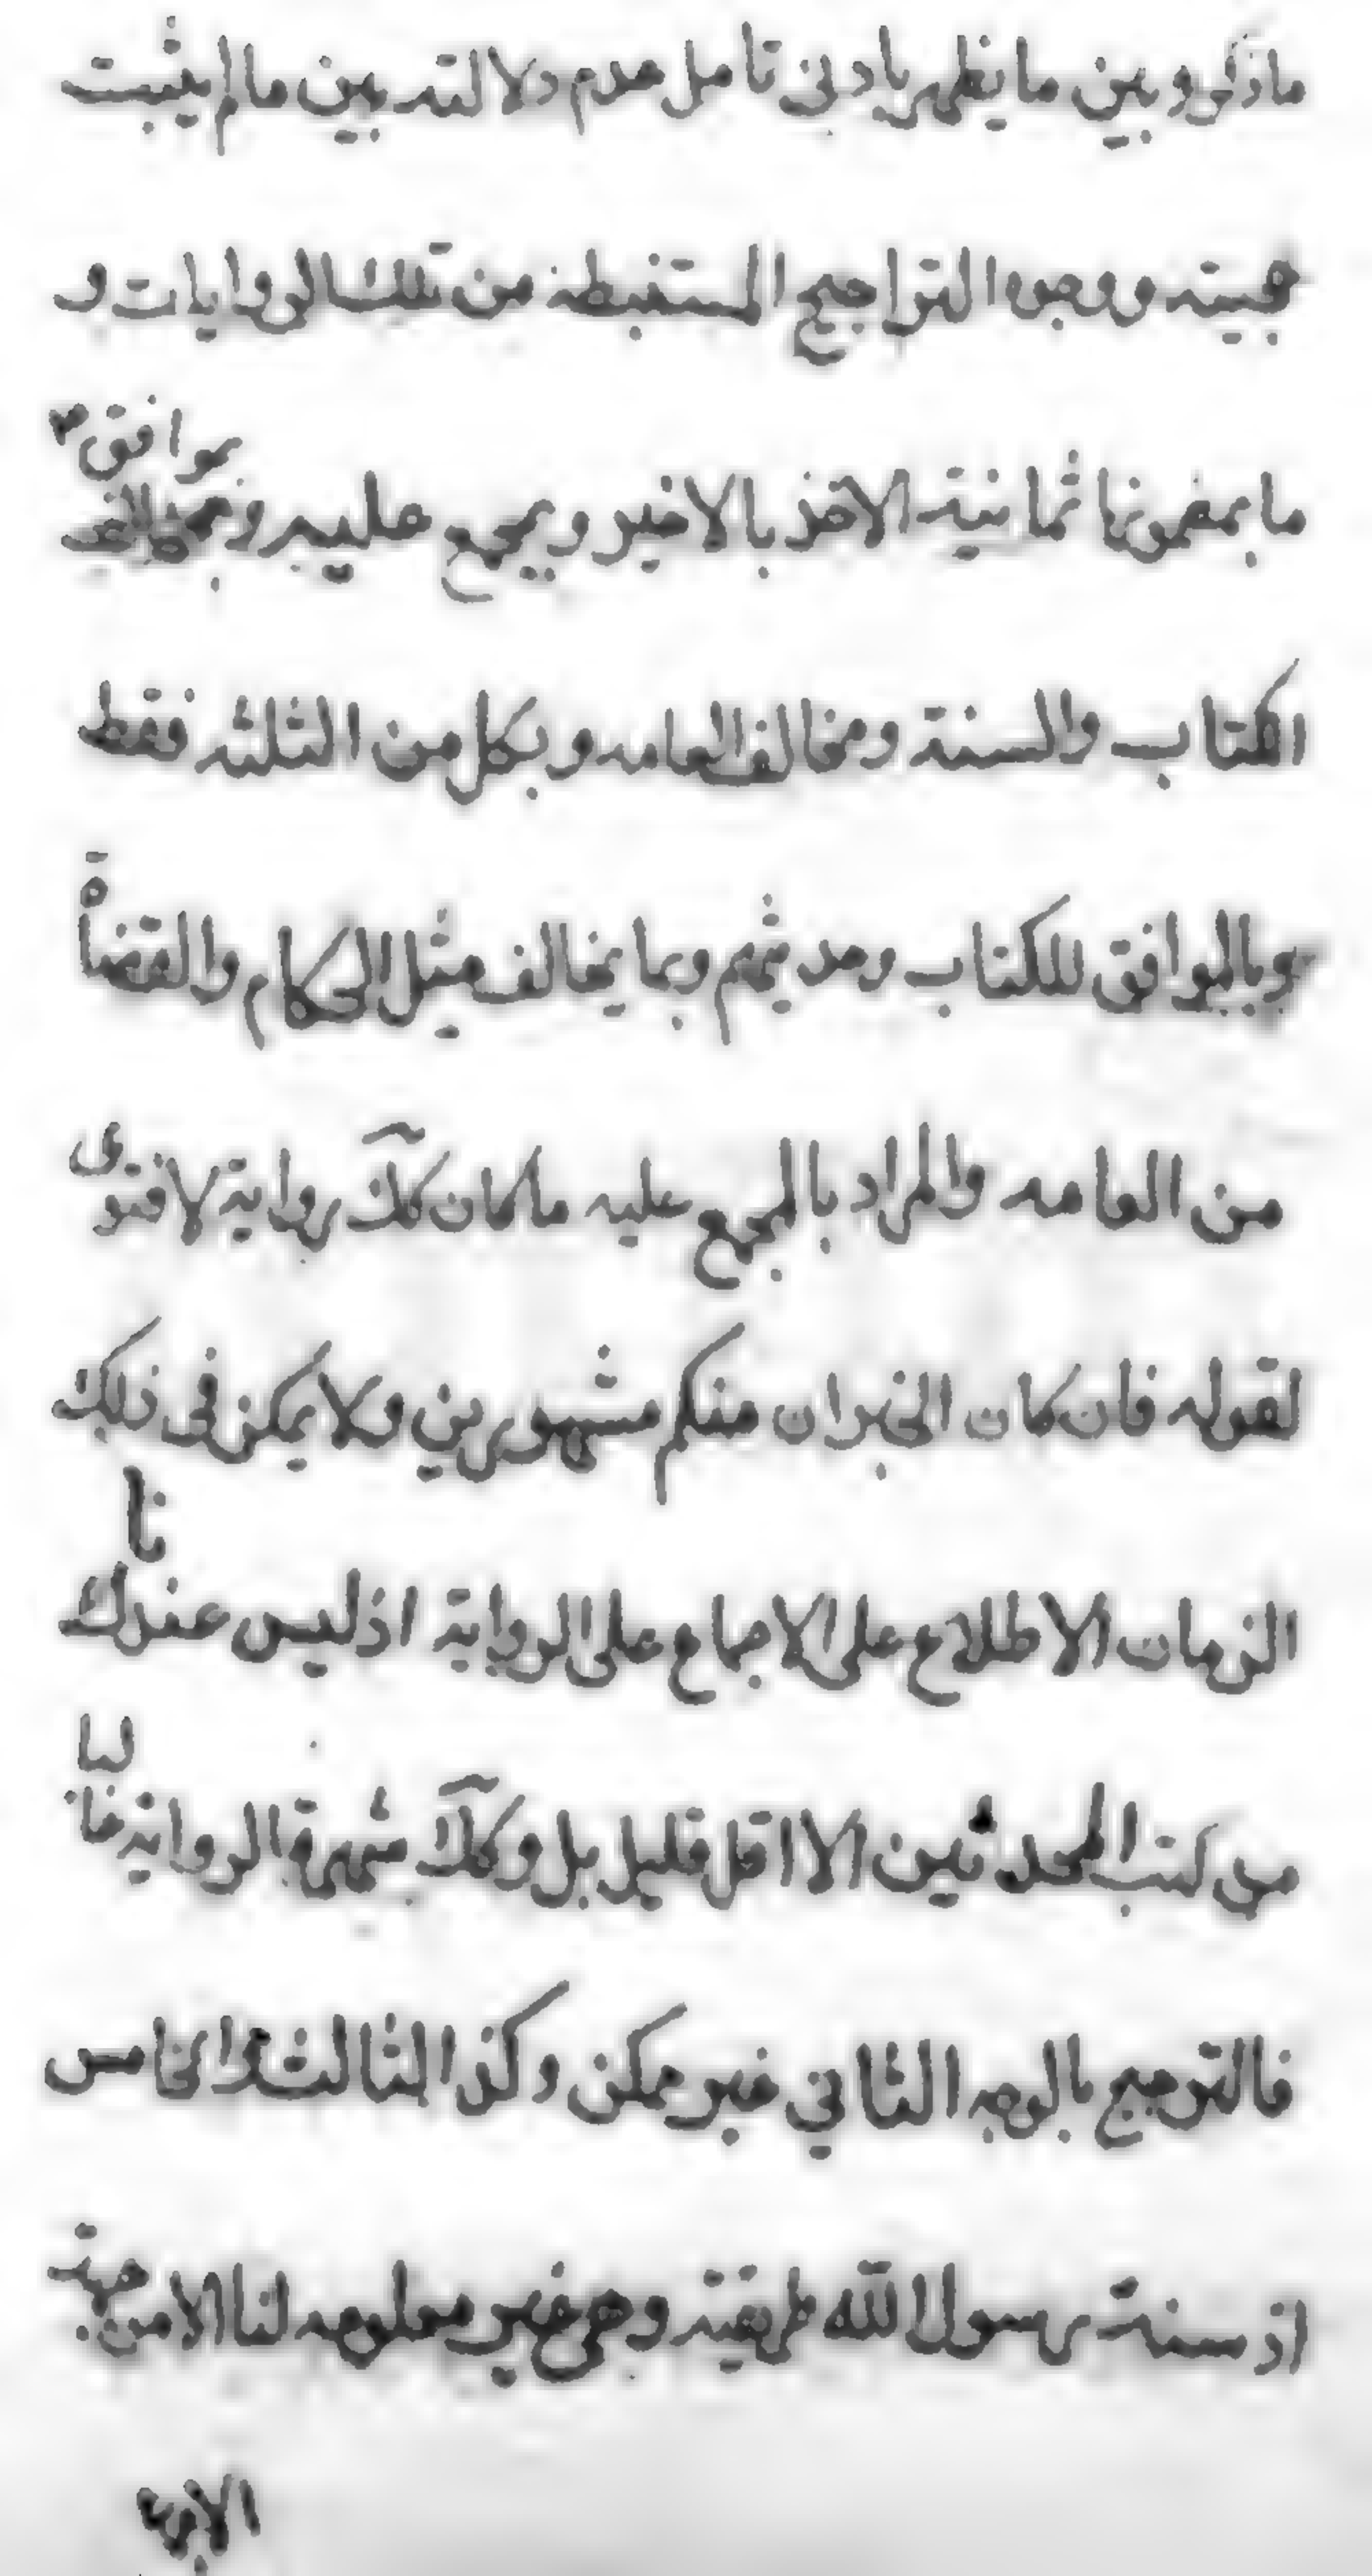 ماذكر وبين ما يظهر بادنى تامل عدم دلالته بين ما لم يثبت
حجيته ووجوه التراجيح المستنبطه من تلك الروايات و
ما بمضمونها ثمانية الاخذ بالاخير وبمجمع عليه وبموافق
الكتاب والسنة ومخالف العامه وبكل من الثلثه فقط
وبالموافق للكتاب وحديثهم وبما يخالف ميل الحكام والقضاة
من العامه والمراد بالمجمع عليه ما كان كك رواية لا فتوى
لقوله فان كان الخبران منكم مشهورين ولا يمكن فى ذلك
الزمان الاطلاع على الاجماع على الرواية اذ ليس عندنا
من كتب المحدثين الا اقل قليل بل وكك شهرة الرواية غالبا
فالترجيح بالوجه الثاني غير ممكن وكذا الثالث والخامس
اذ سنة رسول الله طريقته وهى غير معلومه لنا الا من جهة